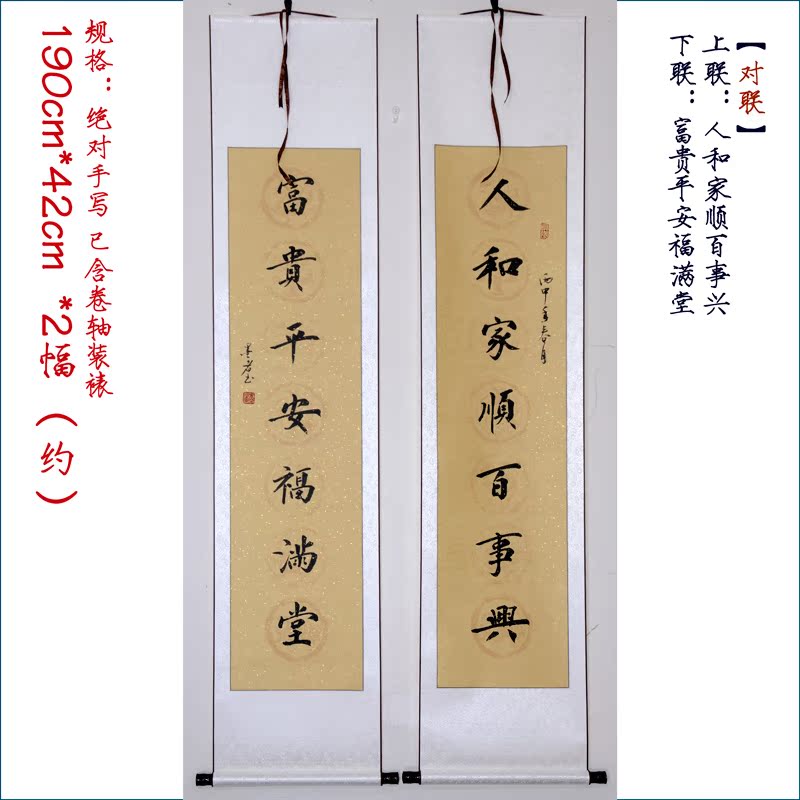 【对联】
上联：人和家顺百事兴
下联：富贵平安福满堂
人和家順百事興
丙申年
富貴平安福滿堂
规格：绝对手写 已含卷轴装裱
190cm*42cm *2幅（约）